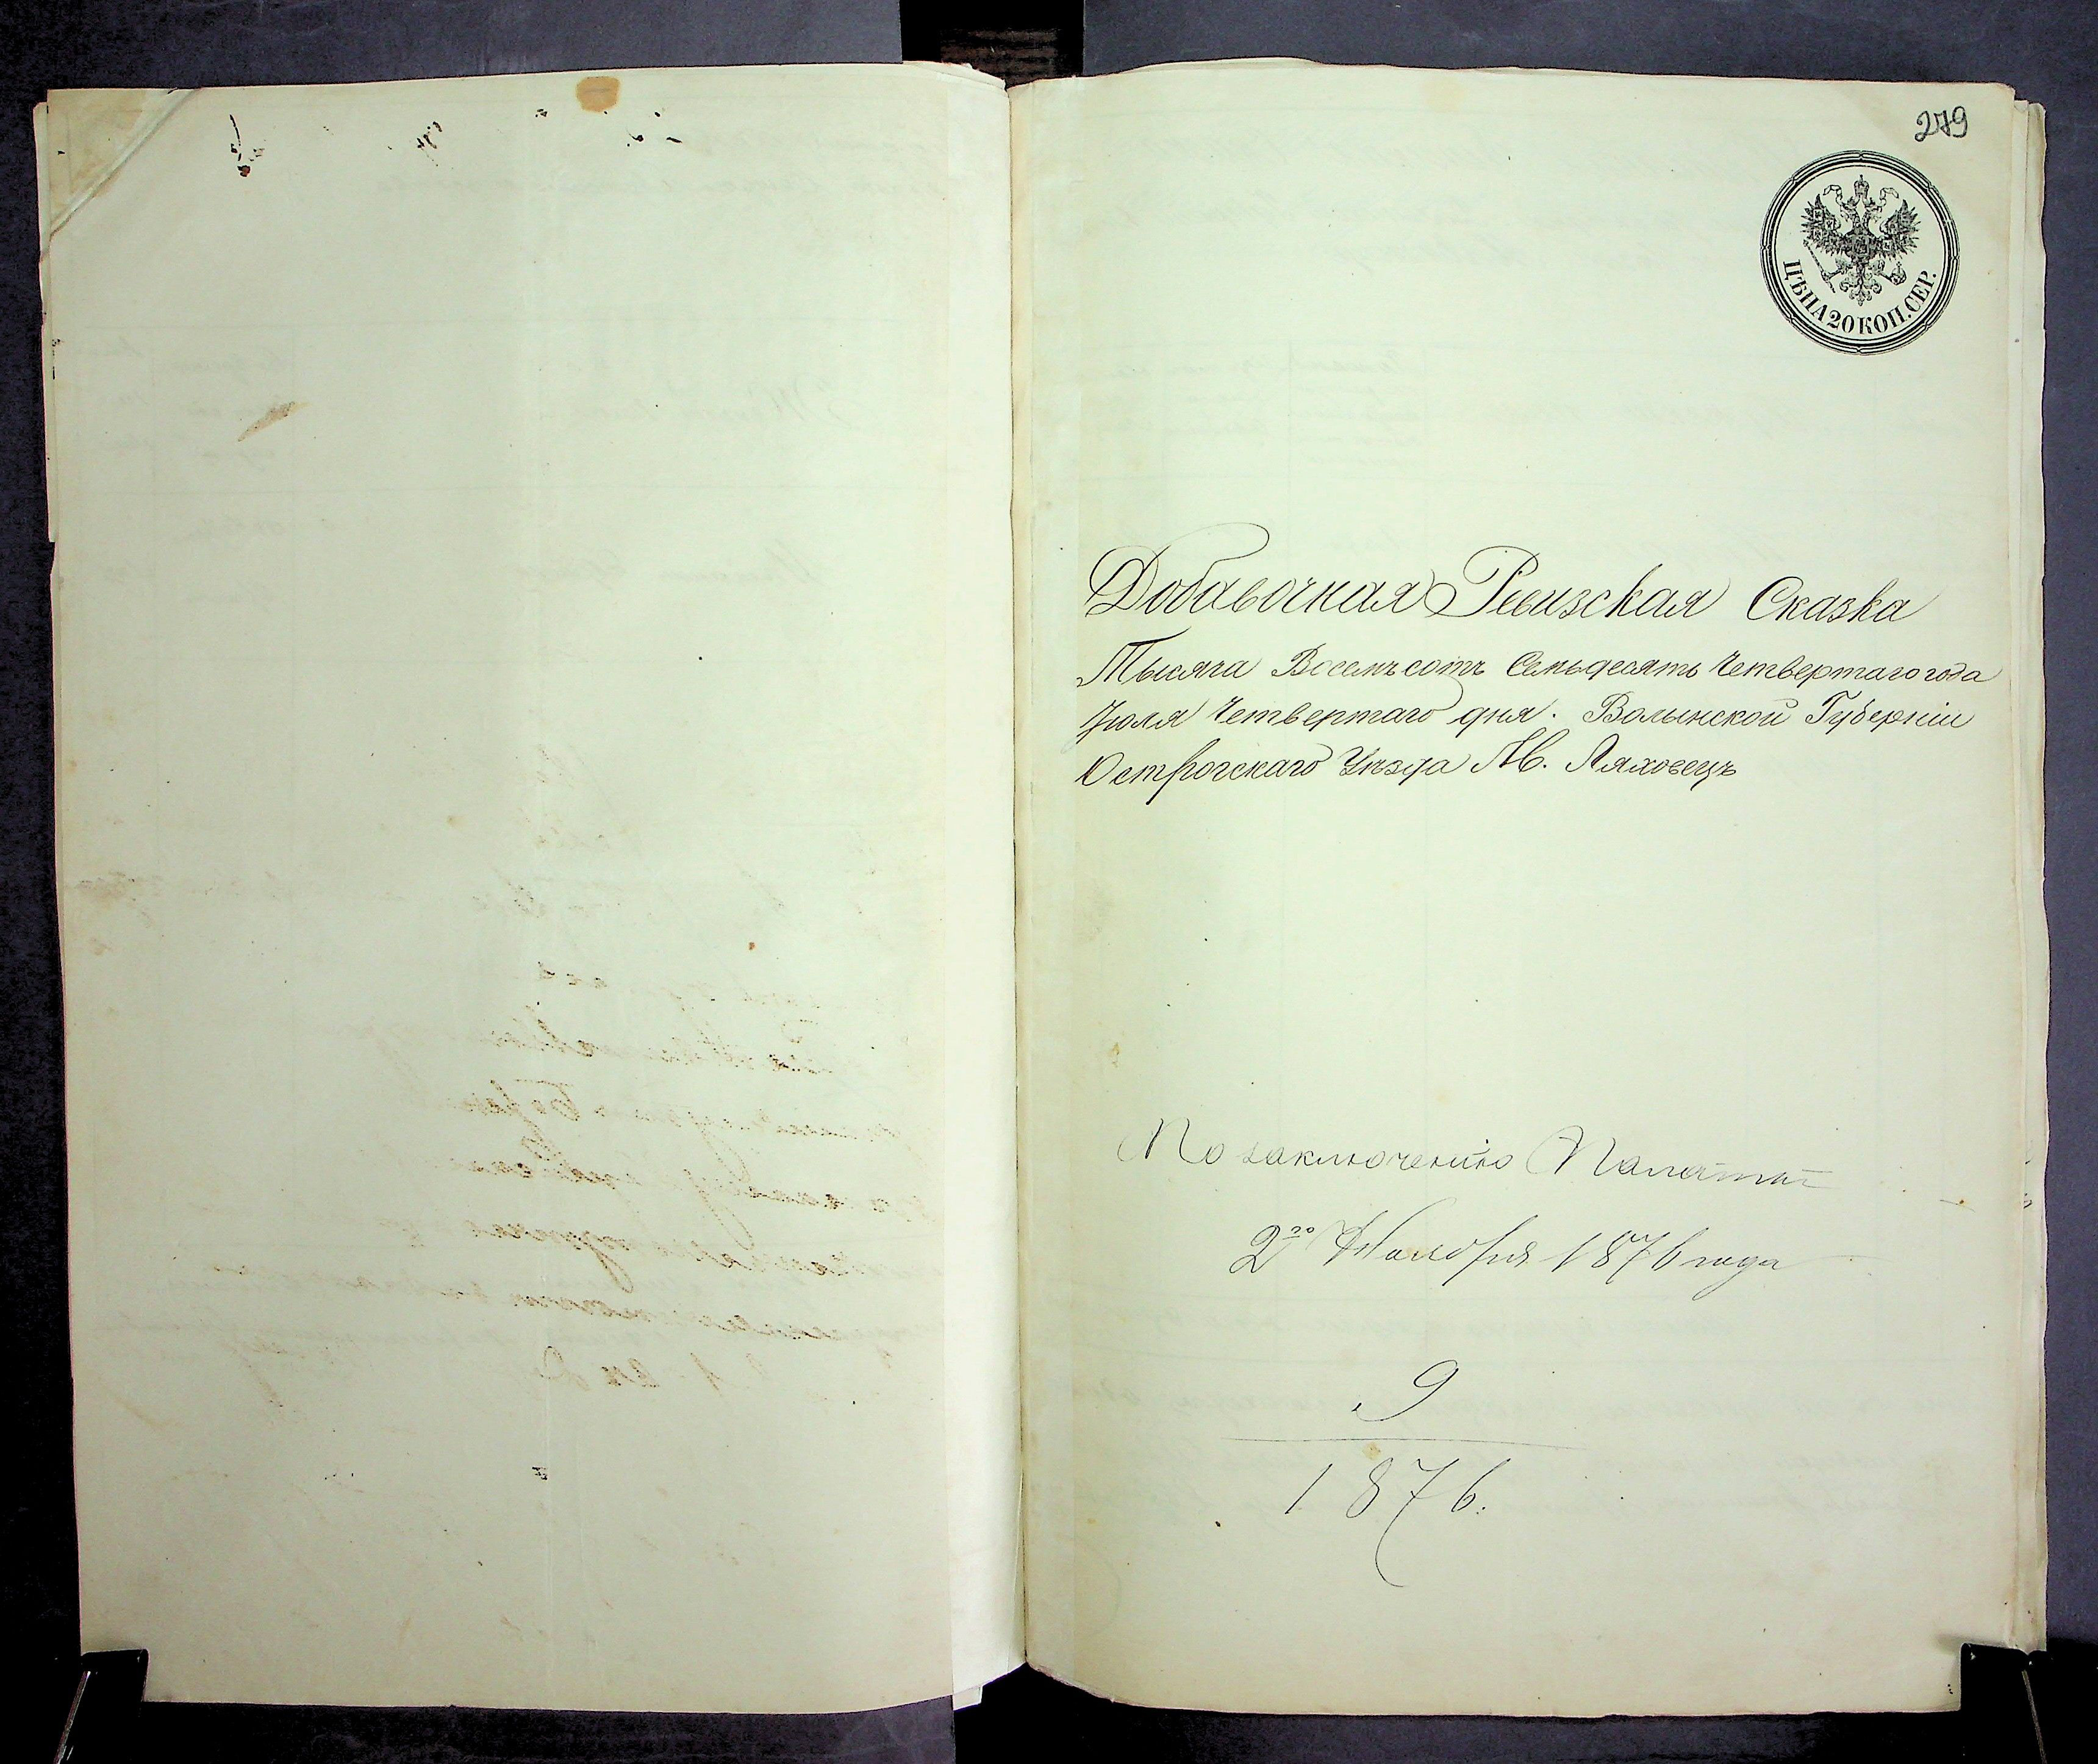 279
ЦѢНА 20 КОП. СЕР.
Добавочная Ревизская Сказка
Тысяча Восемъсотъ Семьдесять Четвертаго года
Іюля Четвертаго дня. Волынской Губерніи
Острогскаго Уѣзда М. Ляховецъ
По заключенію Палаты
2го Ноября 1876 года
9
1876.